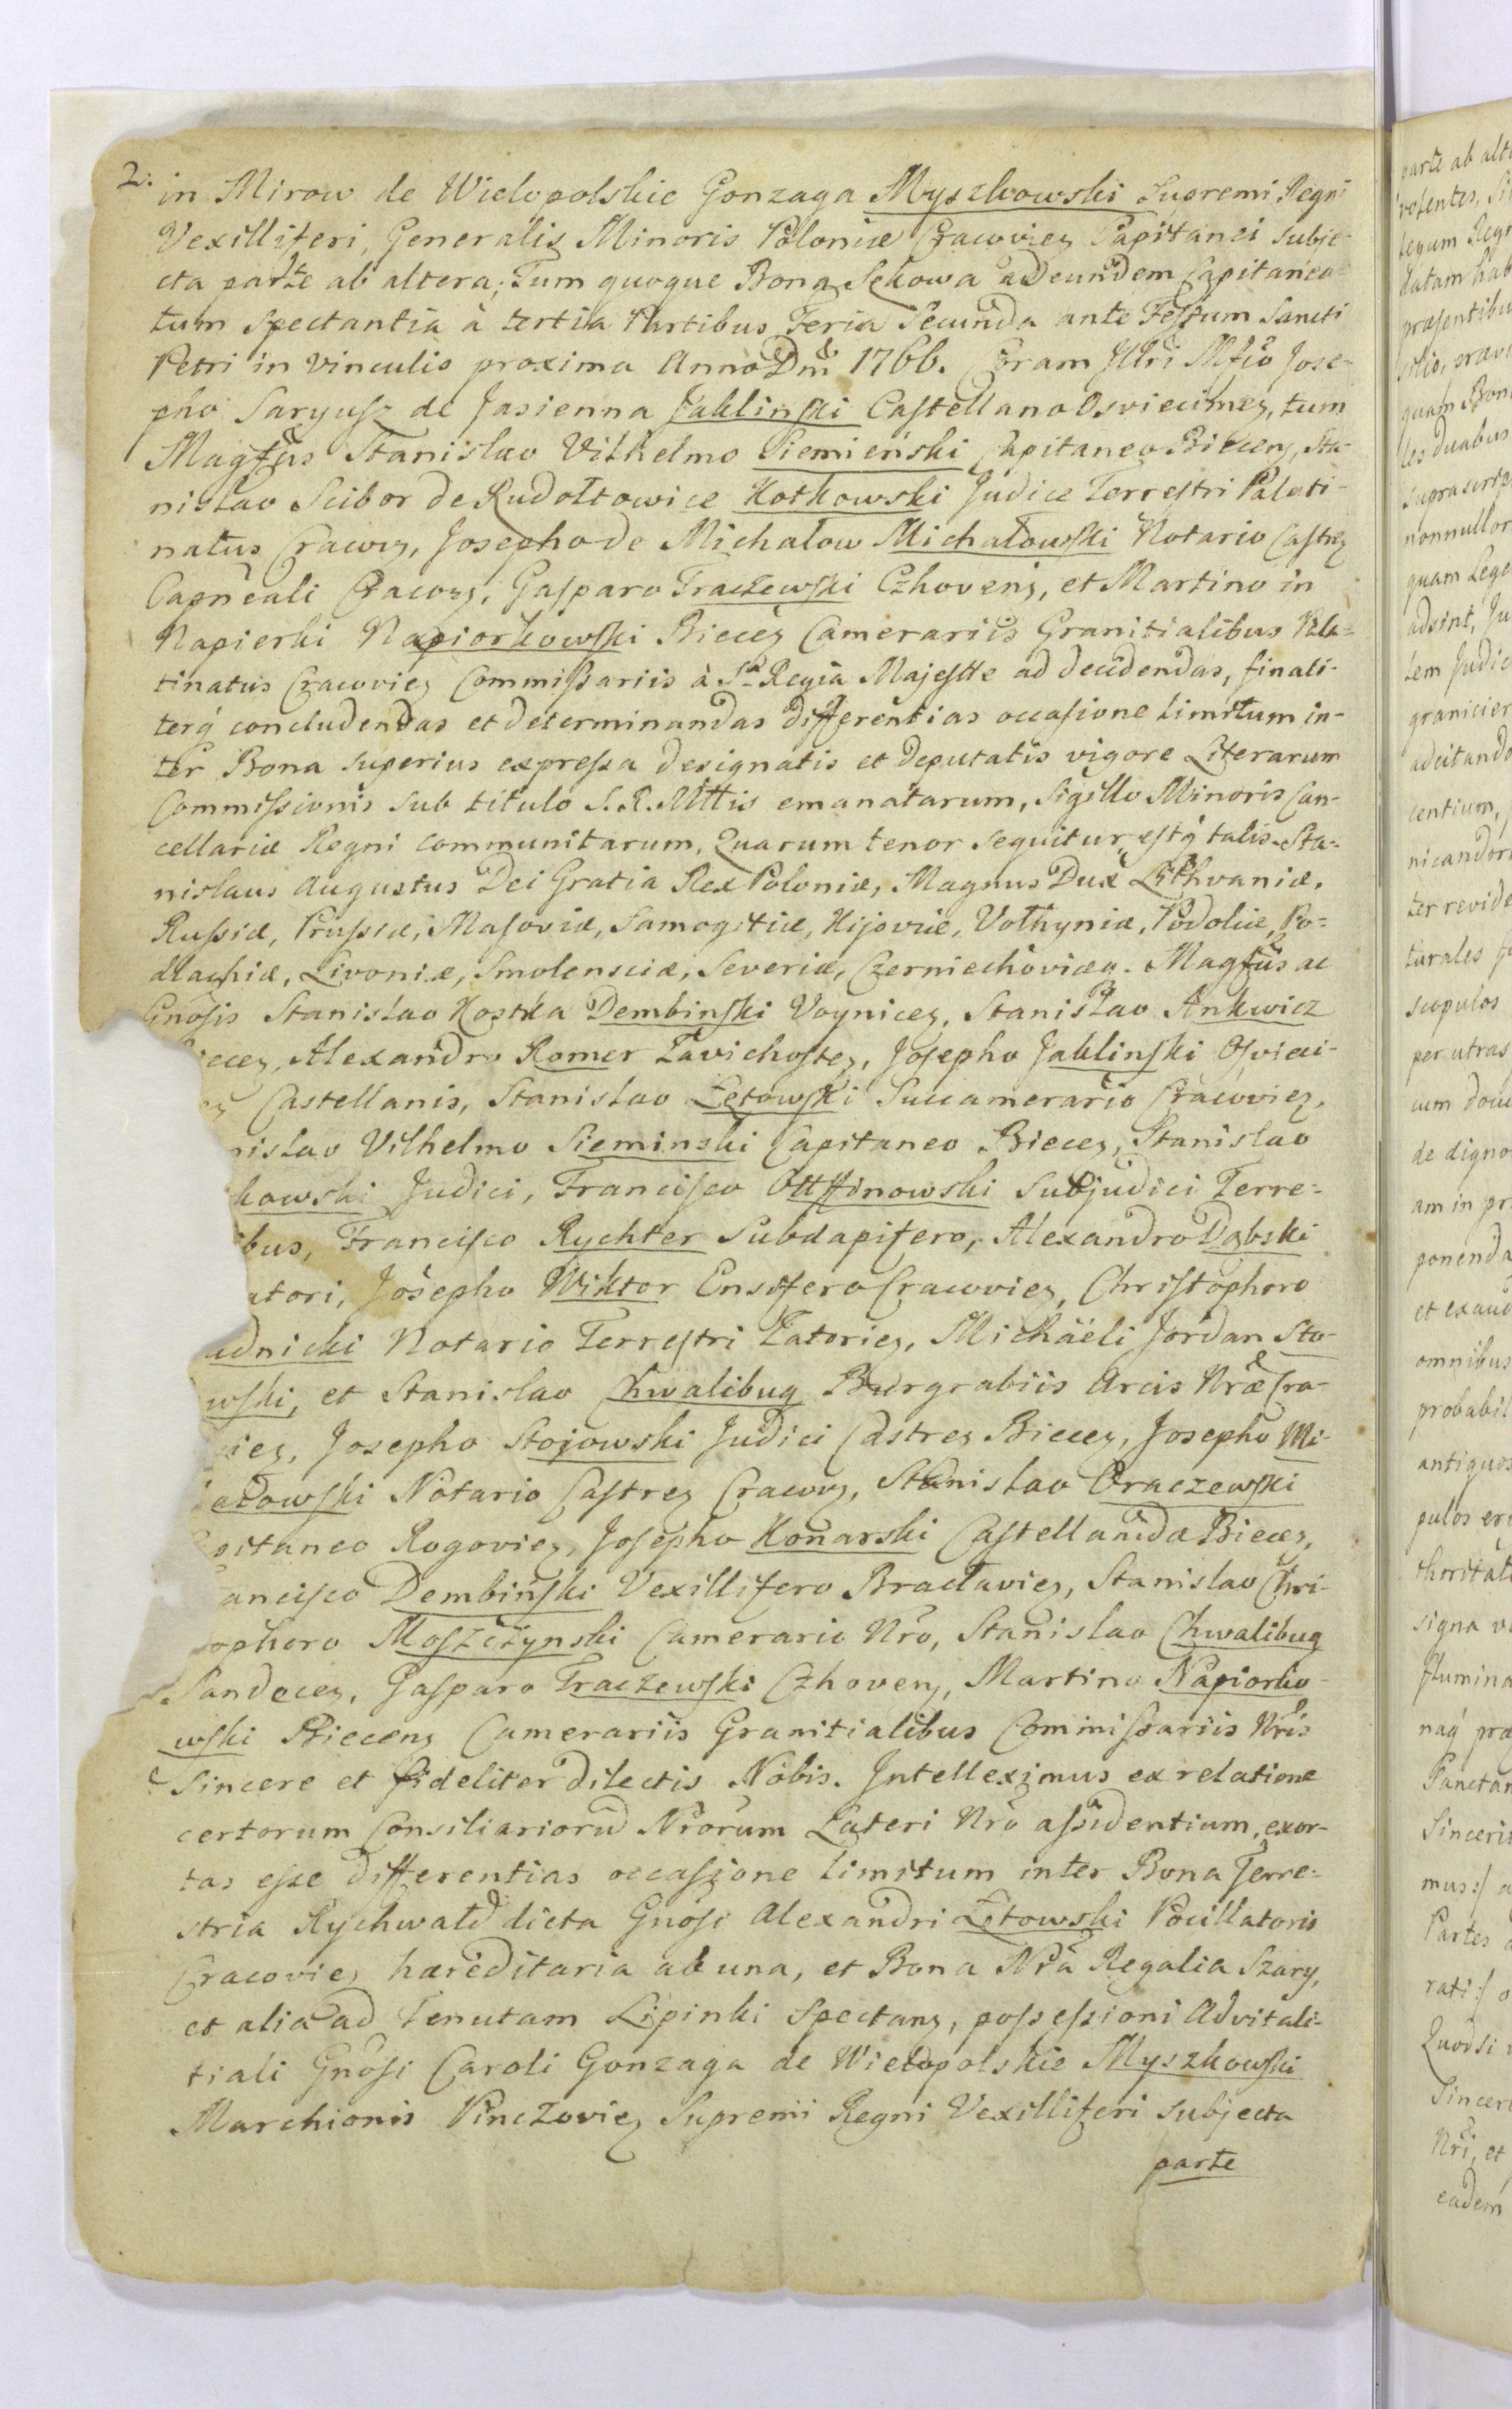 2. in Mirow de Wielopolskie Gonzaga Myszkowski Supremi Regni
Vexilliferi, Generalis Minoris Poloniæ Cracovien Capitanei subje-
cta parte ab altera; Tum quoque Bona Sękowa ad eundem Capitanea-
tum spectantia à tertia Partibus Feria Secunda ante Festum Sancti
Petri in vinculis proxima Anno Dni 1766. Coram Illri Mfco Jose-
pho Saryusz de Jasienna Jaklinski Castellano Osviecimen, tum
Magfcis Stanislao Vilhelmo Siemieński Capitaneo Biecen, Sta-
nislao Scibor de Rudołtowice Kotkowski Judice Terrestri Palati-
natus Cracov, Josepho de Michałow Michałowski Notario Castren
Capneali Cracov, Gasparo Traczewski Czhoven, et Martino in
Napierki Napiorkowski Biecen Camerariis Granitialibus Pala-
tinatus Cracovien Commissariis à Sa Regia Majestte ad decidendas, finali-
terq concludendas et determinandas differentias occasione limitum in-
ter Bona superius expressa designatis et deputatis vigore Literarum
Commissionis sub titulo S. R. Mttis emanatarum, Sigillo Minoris Can-
cellariæ Regni communitarum, Quarum tenor sequitur, estq talis. Sta-
nislaus Augustus Dei Gratia Rex Poloniæ, Magnus Dux Lithvaniæ,
Russiæ, Prussiæ, Masoviæ, Samogitiæ, Kijoviæ, Volhyniæ, Podoliæ, Po-
dlachiæ, Livoniæ, Smolensciæ, Severiæ, Czerniechoviæq. Magfcis ac
Gnosis Stanislao Kostka Dembinski Voynicen, Stanislao Ankwicz
iecen, Alexandro Romer Zavichosten, Josepho Jaklinski Osvieci-
en Castellanis, Stanislao Łętowski Succamerario Cracovien,
nislao Vilhelmo Sieminski Capitaneo Biecen, Stanislao
kowski Judici, Francisco Ottfinowski Subjudici Terre-
ibus, Francisco Rychter Subdapifero, Alexandro Dąbski
atori, Josepho Wiktor Ensifero Cracovien, Christophoro
udnicki Notario Terrestri Zatorien, Michaëli Jordan Sto-
wski, et Stanislao Chwalibug Burgrabiis Arcis Nræ Cra-
vien, Josepho Stojowski Judici Castren Biecen, Josepho Mi-
ałowski Notario Castren Cracov, Stanislao Traczewski
pitaneo Rogovien, Josepho Konarski Castellanidæ Biecen,
ancisco Dembiński Vexillifero Bracłavien, Stanislao Chri-
ophoro Moszczynski Camerario Nro, Stanislao Chwalibug
Sandecen, Gasparo Traczewski Czhoven, Martino Napiorko-
wski Biecen Camerariis Granitialibus Commissariis Nris
Sincere et fideliter dilectis Nobis. Intelleximus ex relatione
certorum Consiliarioru Nrorum Lateri Nro assidentium, exor-
tas esse differentias occasione limitum inter Bona Terre-
stria Rychwałd dicta Gnosi Alexandri Łętowski Pocillatoris
Cracovien hæreditaria ab una, et Bona Nra Regalia Szary,
et alia ad Tenutam Lipinki spectan, possessioni Advitali-
tiali Gnosi Caroli Gonzaga de Wielopolskie Myszkowski
Marchionis Pinczovien Supremi Regni Vexilliferi subjecta
parte